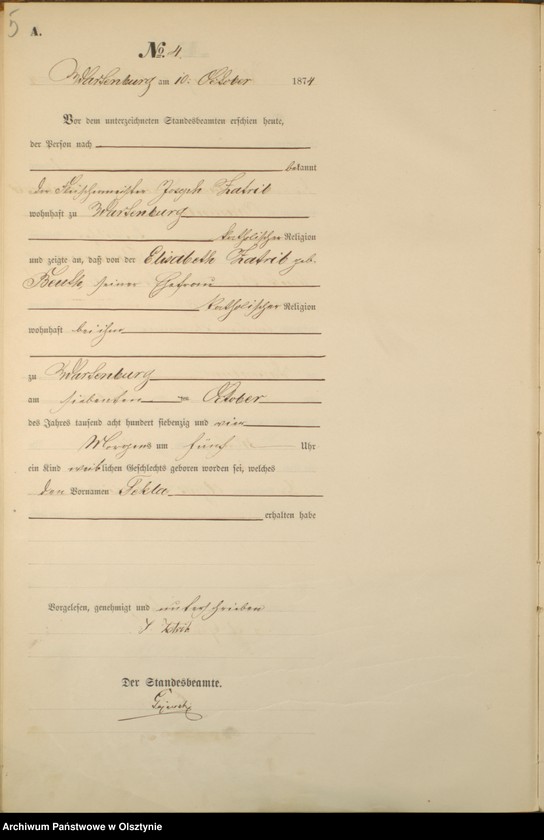 5
A.
No. 4
Wartenburg am 10. Oktober 1874
Vor dem unterzeichneten Standesbeamten erschien heute,
der Person nach
bekannt
der Joseph Zatrib
wohnhaft zu Wartenburg
katholischer Religion
und zeigte an, daß von der Elisabeth Zatrib geb.
seiner Ehefrau
katholischer Religion
wohnhaft bei ihm
zu Wartenburg
am siebenten Oktober
des Jahres tausend acht hundert siebenzig und vier
Morgens um fünf Uhr
ein Kind weiblichen Geschlechts geboren worden sei, welches
den Vornamen Tekla
erhalten habe
Vorgelesen, genehmigt und unterschrieben
Der Standesbeamte.
Archiwum Państwowe w Olsztynie